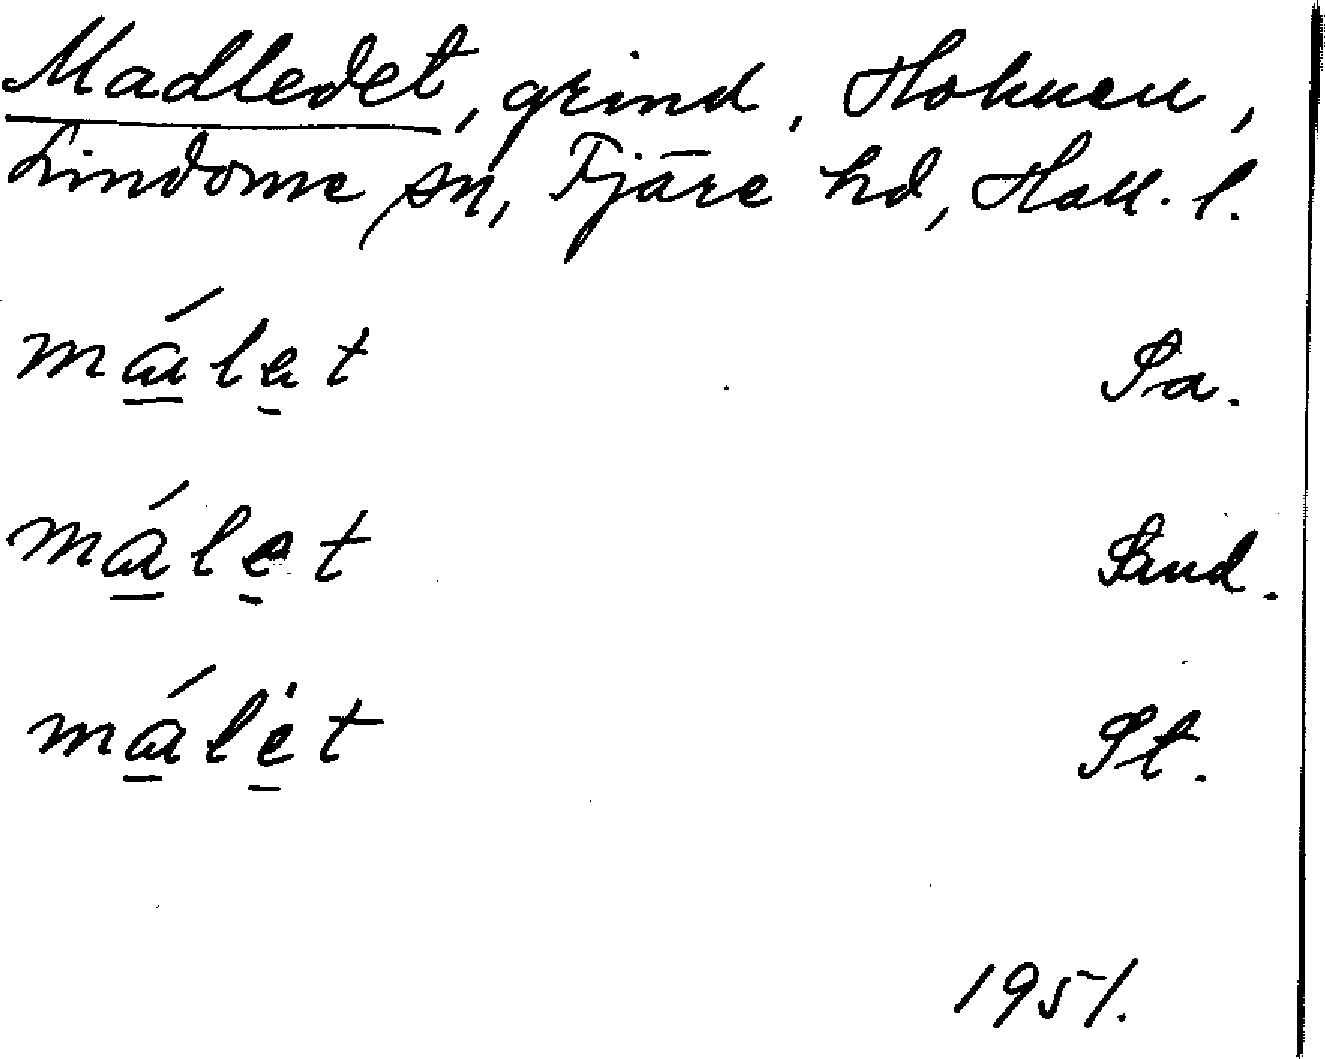 Madledet, grind, Holmen,
Lindome sn, Fjäre hd, Hall. l.
málet Sa.
málet Smd.
málet St.
1951.